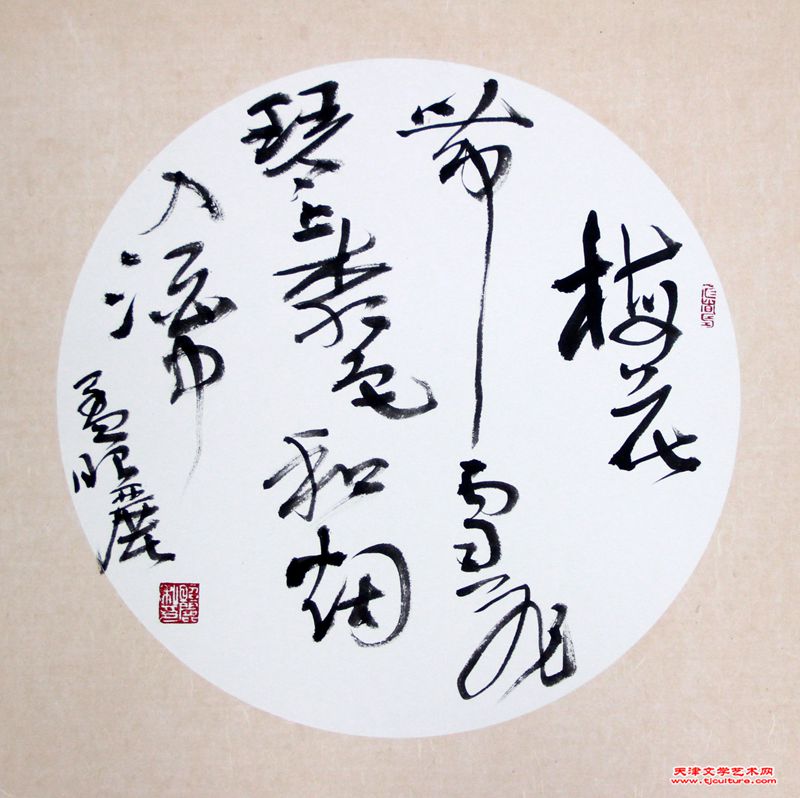 梅花
帶雪飛
琴上柳色和烟
入酒中
孟昭麗
天津文学艺术网
www.tjculture.com